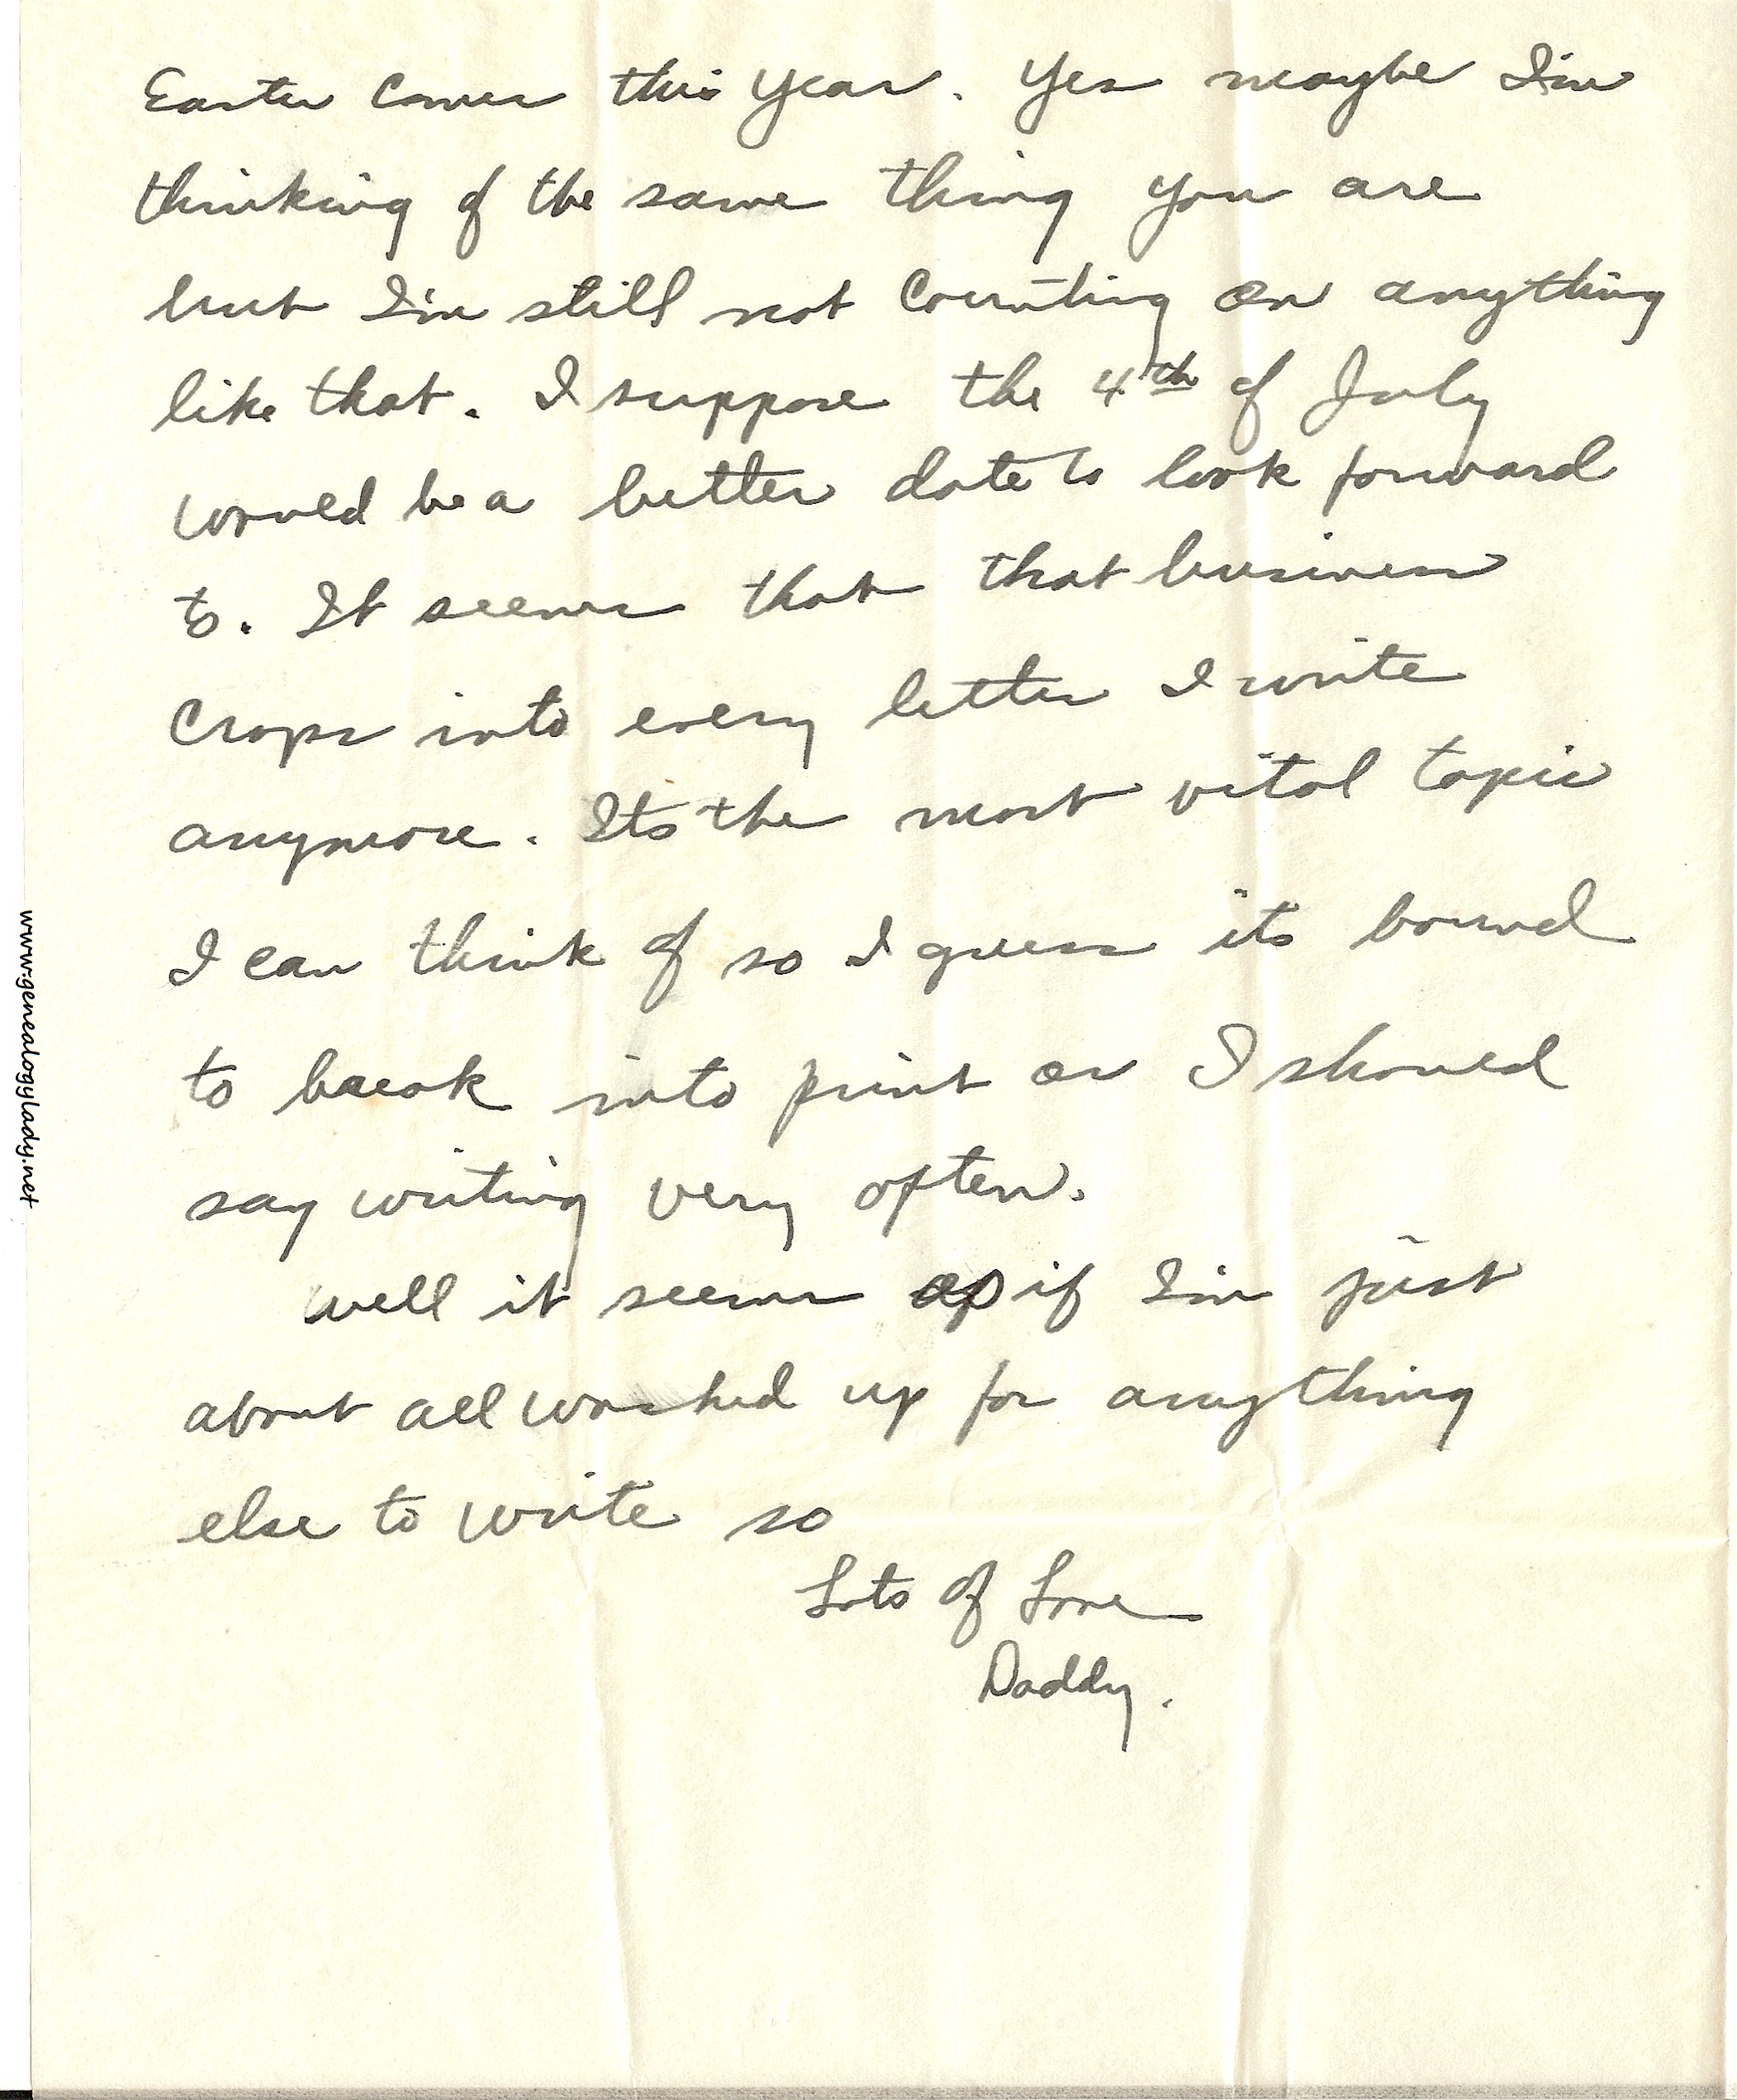 Easter comes this year. Yes maybe I'm
thinking of the same thing you are
but I'm still not counting on anything
like that. I suppose the 4th of July
would be a better date to look forward
to. It seems that that business
crops into every letter I write
anymore. Its the most vital topic
I can think of so I guess its bound
to break into print or I should
say writing very often.
Well it seems as if I'm just
about all washed up for anything
else to write so
Lots of Love
Daddy.
www.genealogylady.net